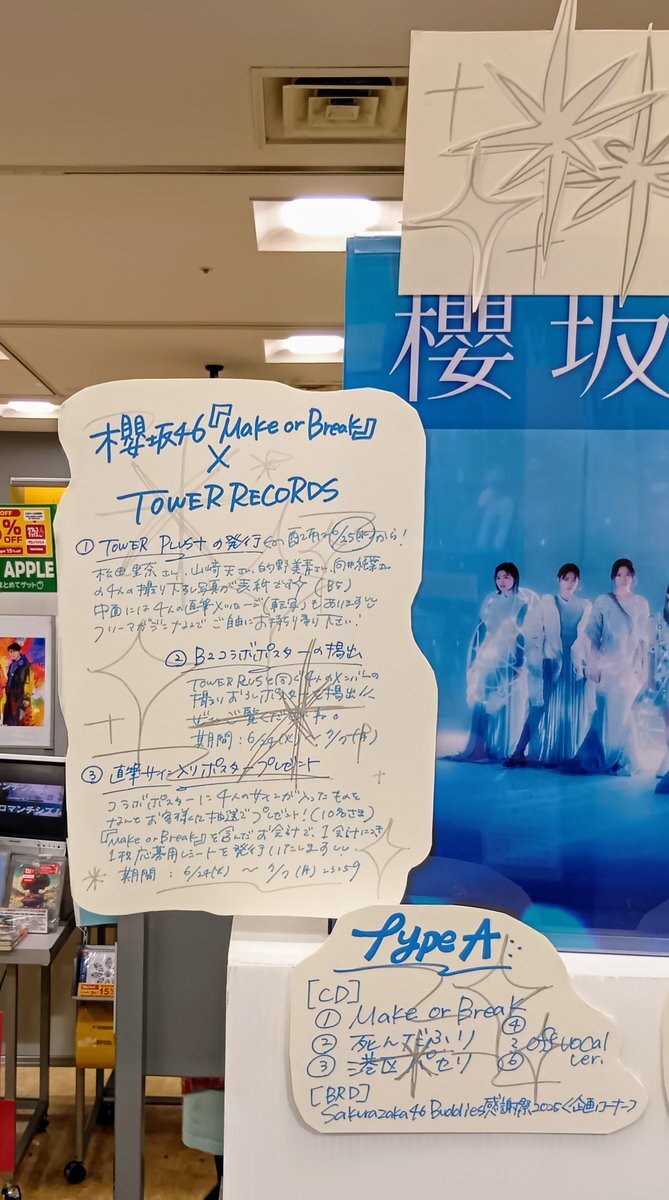 櫻坂
櫻坂46『Make or Break』
×
TOWER RECORDS
① TOWER PLUS+の発行 配布は6/25(水)から!
松田里奈さん、山﨑天さん、的野美青さん、向井純葉さん
の4人の撮り下ろし写真が表紙です (B5)
中面には4人の直筆メッセージ(転写)もあります
フリーマガジンなのでご自由にお持ち帰り下さい!
② B2コラボポスターの掲出
TOWER PLUSと同じく4人のメンバーの
撮り下ろしポスターを掲出
ぜひご覧くださいね。
期間:6/24(火)〜7/7(月)
③ 直筆サイン入りポスタープレゼント
コラボポスターに4人のサインが入ったものを
なんとお客様に抽選でプレゼント!(10名さま)
『Make or Break』を含んだお会計で、1会計につき
1枚応募用レシートを発行いたします
期間:6/24(火)〜7/7(月)23:59
Type A
[CD]
① Make or Break
② 死んだふり
③ 港区パセリ
④
⑥
off vocal
ver.
[BRD]
Sakurazaka46 Buddies感謝祭2025<企画コーナー>
OFF
%
OFF
APPLE
まとめてザット
ロマンチシズム
15%